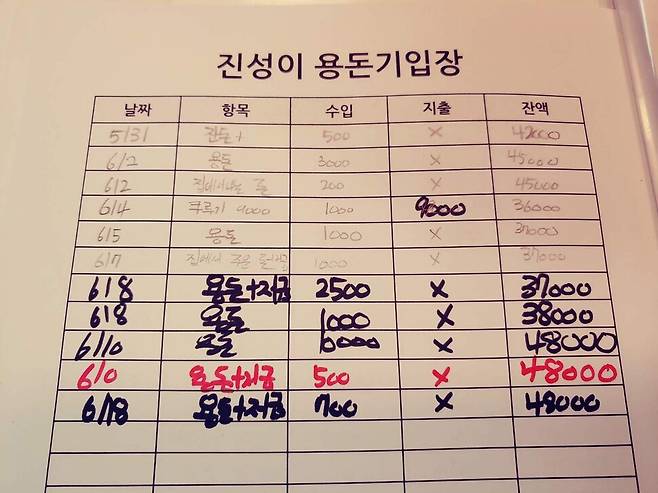 진성이 용돈기입장
날짜 항목 수입 지출 잔액
5/31 잔돈+ 500 X 42000
6/2 용돈 3000 X 45000
6/2 집에서나온 돈 200 X 45000
6/4 9000 1000 9000 36000
6/5 용돈 1000 X 37000
6/7 집에서 주운 돈+저금 1000 X 37000
6/8 용돈+저금 2500 X 37000
6/8 용돈 1000 X 38000
6/10 용돈 10000 X 48000
6/10 용돈+저금 500 X 48000
6/18 용돈+저금 700 X 48000